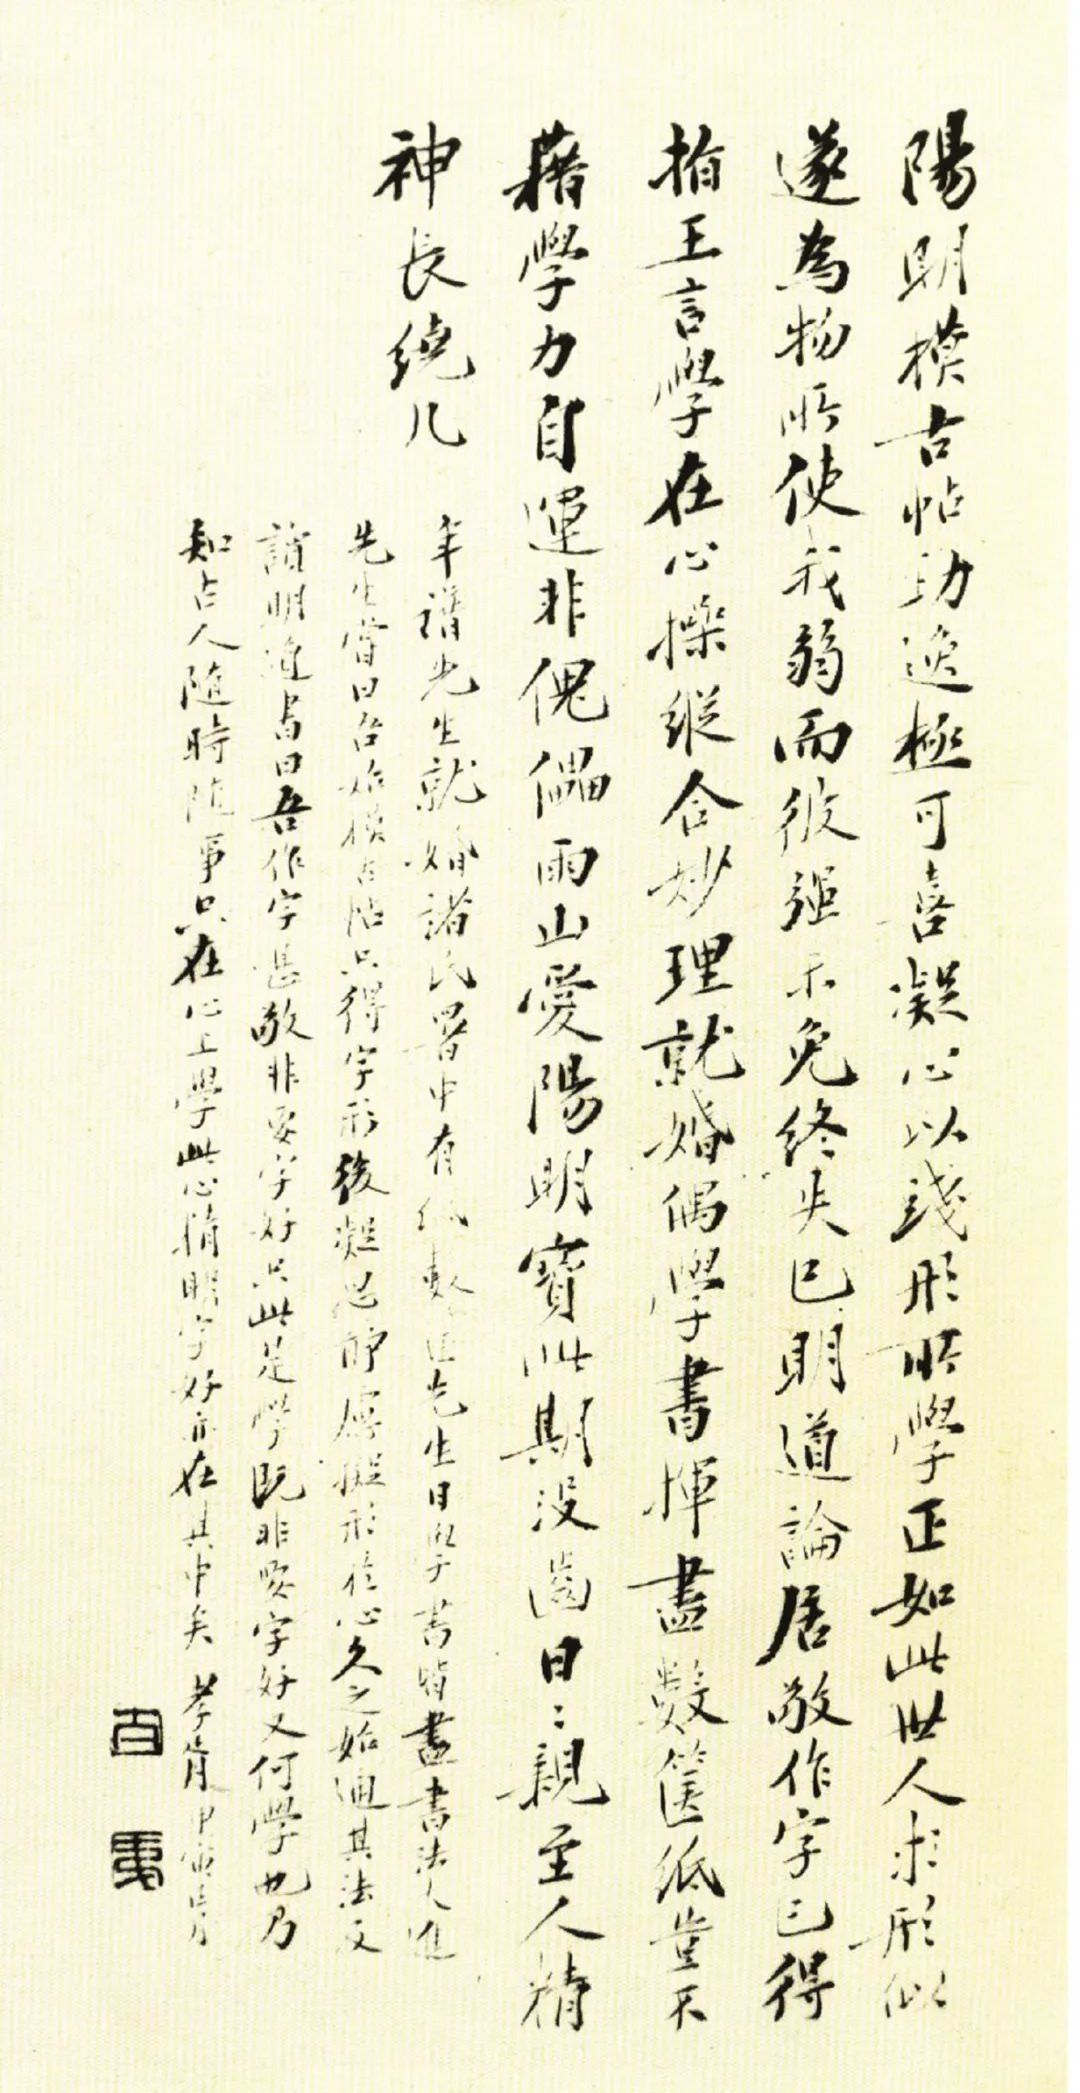 陽明模古帖功逸極可喜凝心以踐形所學正如此世人求形似
遂為物所使我弱而彼強不免終失己明道論居敬作字已得
指王言學在心操縱合妙理就婚偶學書揮盡數篋紙豈不
藉學力自運非傀儡雨山愛陽明寶此期没齒日〻親至人精
神長繞几
年譜先生就婚諸氏署中有紙數篋先生日學書皆盡書法大進
先生嘗曰吾始模古帖只得字形後凝思靜慮擬形於心久之始通其法又
讀明道書曰吾作字甚敬非要字好只此是學既非要字好又何學也乃
知古人隨時隨事只在心上學此心精明字好亦在其中矣 孝胥